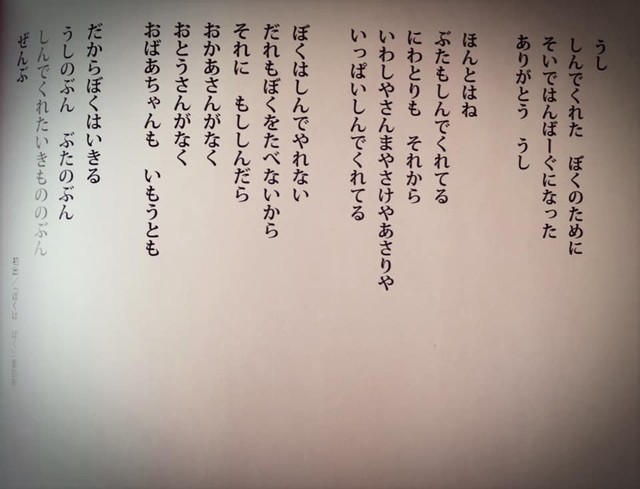 うし
しんでくれた　ぼくのために
そいではんばーぐになった
ありがとう　うし
ほんとはね
ぶたもしんでくれてる
にわとりも　それから
いわしやさんまやさけやあさりや
いっぱいしんでくれてる
ぼくはしんでやれない
だれもぼくをたべないから
それに　もししんだら
おかあさんがなく
おとうさんがなく
おばあちゃんも　いもうとも
だからぼくはいきる
うしのぶん　ぶたのぶん
しんでくれたいきもののぶん
ぜんぶ
初出／『ぼくは　ぼく』